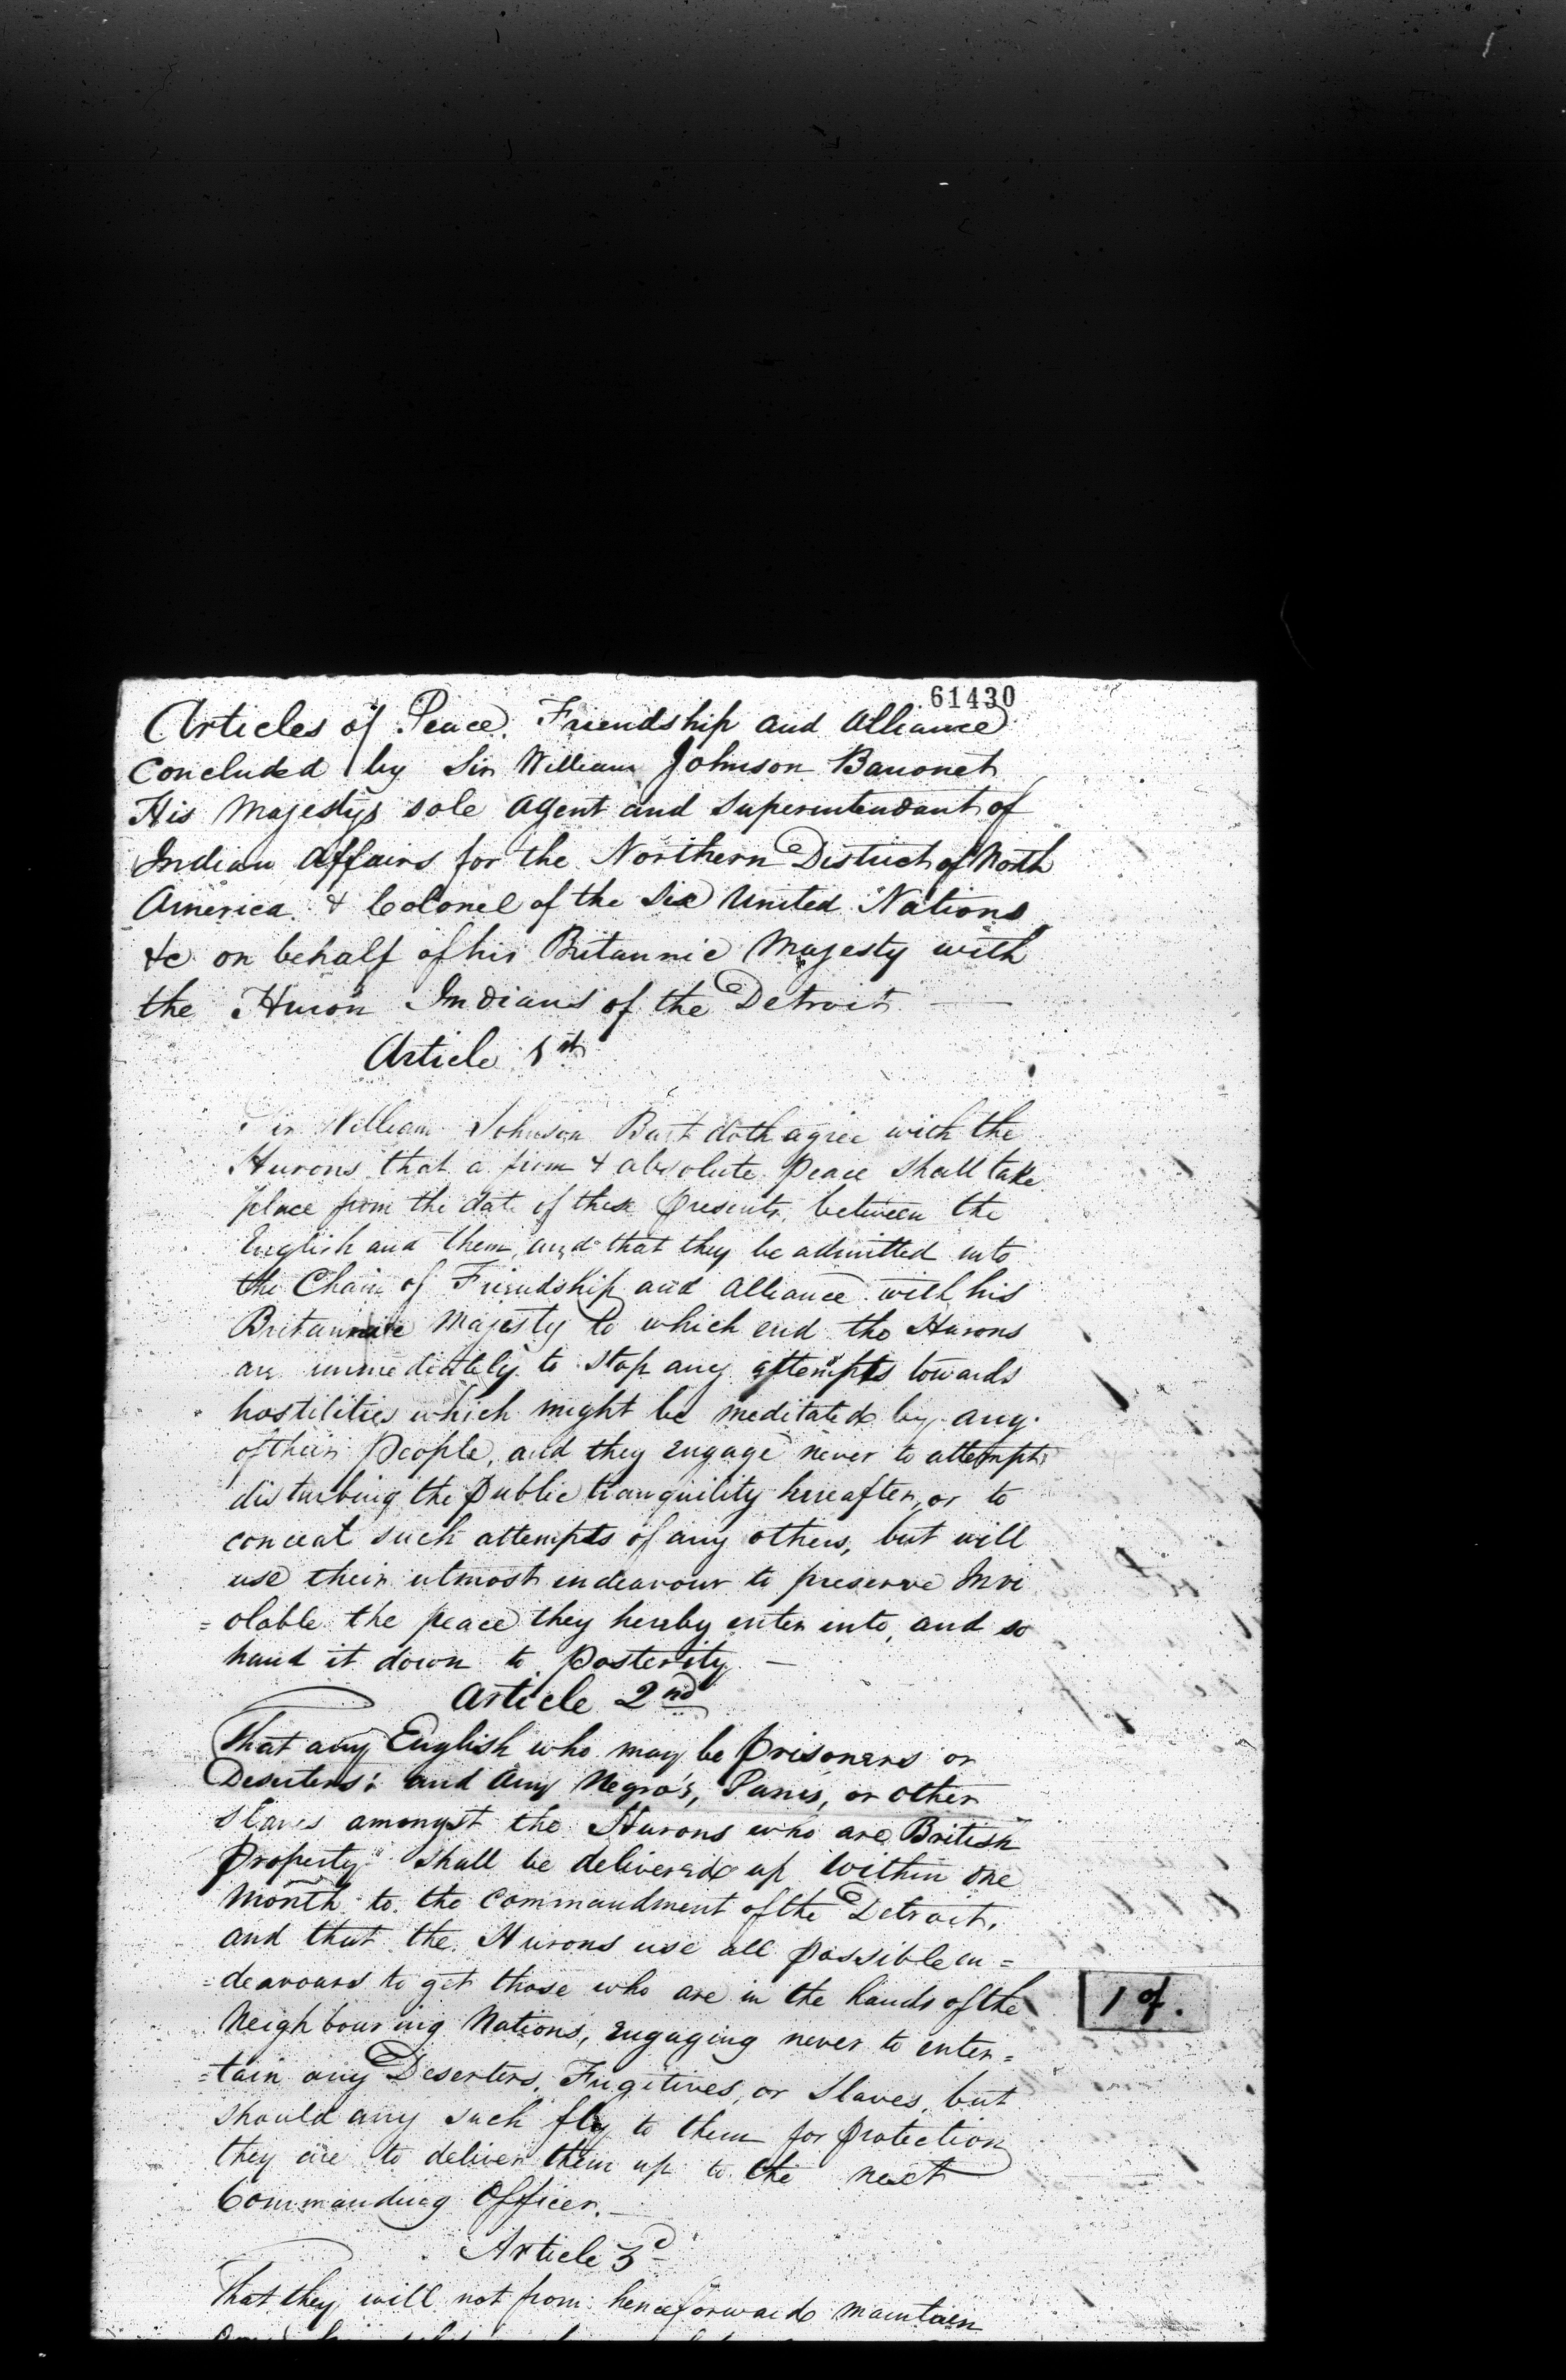 61430
Articles of Peace. Friendship and Alliance
Concluded by Sir William Johnson Baronet
His Majestys sole Agent and Superintendant of
Indian Affairs for the Northern District of North
America. & Colonel of the Six United Nations
&c on behalf of his Britannic Majesty with
the Huron Indians of the Detroit —
Article 1st
Sir William Johnson Bart doth agree with the
Hurons that a firm & absolute Peace shall take
place from the date of these presents, between the
English and them, and that they be admitted into
the Chain of Friendship and Alliance with his
Britannic Majesty to which end the Hurons
are immediately to stop any attempts towards
hostilities which might be meditated by any
of their People, and they engage never to attempt
disturbing the Public tranquility hereafter, or to
conceal such attempts of any others, but will
use their utmost endeavour to preserve Invi
=olable the peace they hereby enter into, and so
hand it down to Posterity —
Article 2nd
That any English who may be Prisoners or
Deserters: and Any Negro's, Panis, or other
Slaves amongst the Hurons who are British
Property shall be delivered up within one
Month to the commandment of the Detroit,
and that the Hurons use all possible en=
=deavours to get those who are in the hands of the
Neighbouring Nations, engaging never to enter=
=tain any Deserters, Fugitives, or Slaves, but
should any such fly to them for protection
they are to deliver them up to the next
Commanding Officer. —
Article 3d
That they will not from henceforward maintain
1 of.